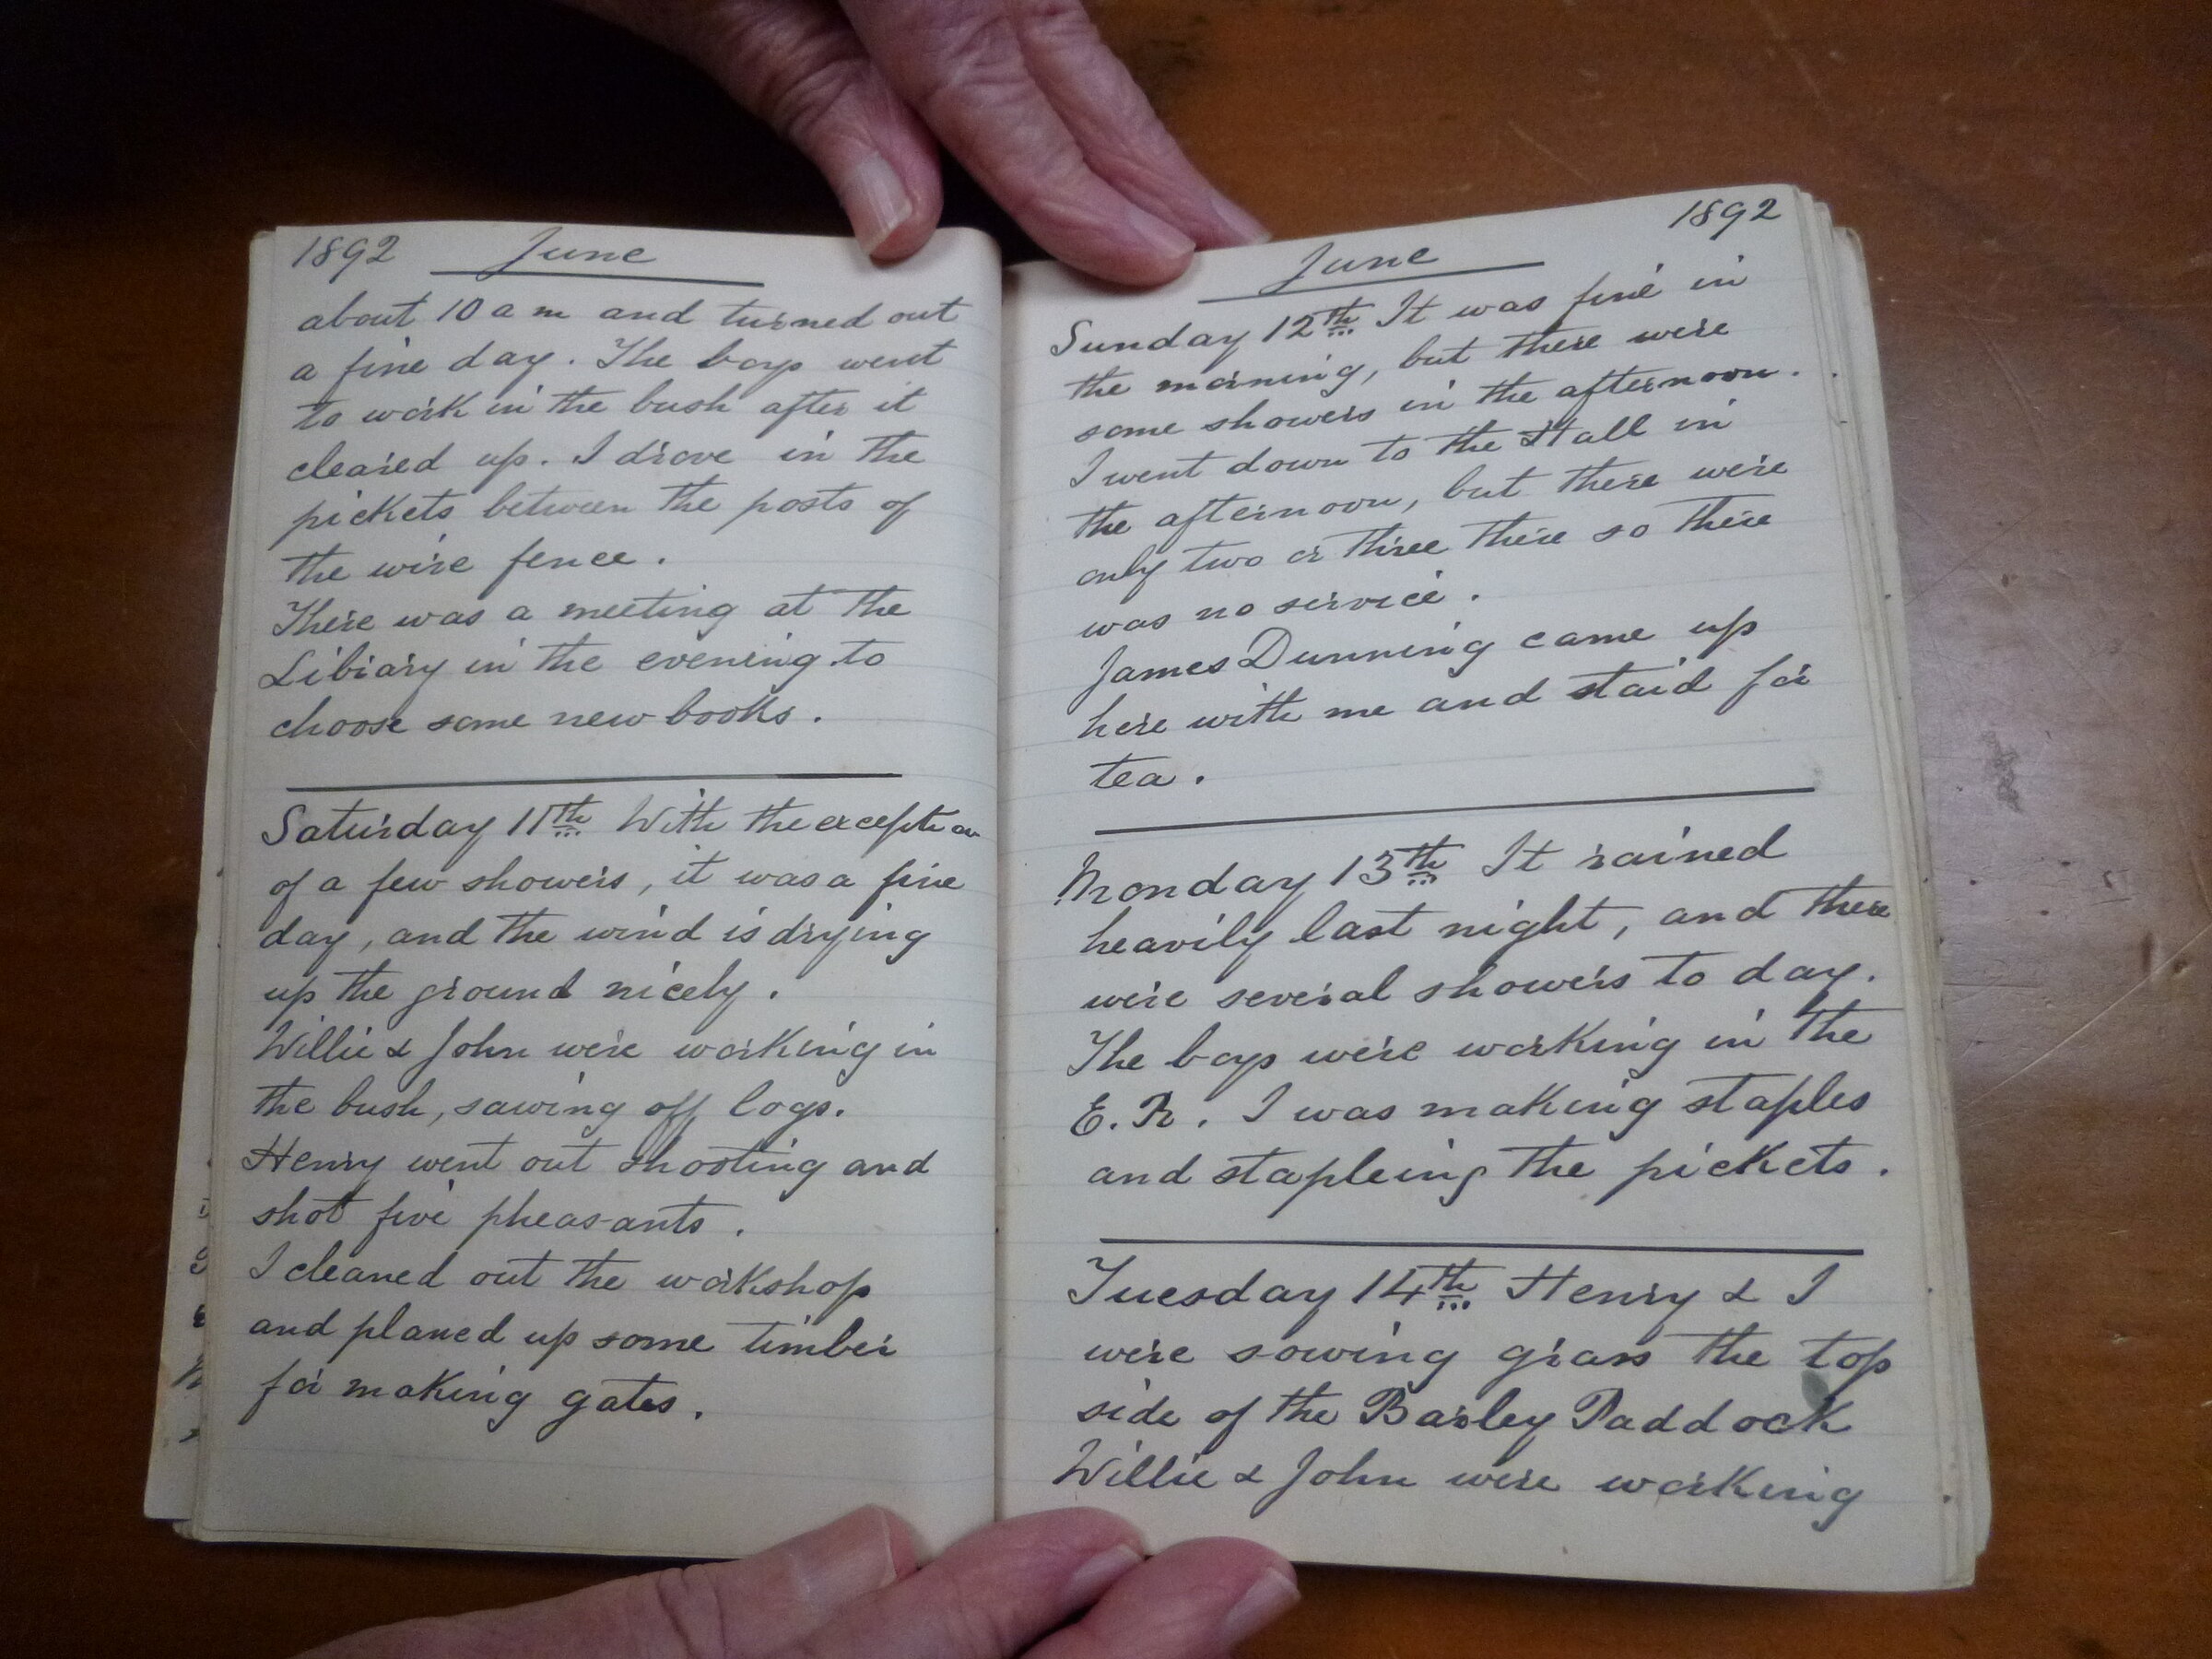 1892 June
about 10 a m and turned out
a fine day. The boys went
to work in the bush after it
cleared up. I drove in the
pickets between the posts of
the wire fence.
There was a meeting at the
Library in the evening to
choose some new books.
Saturday 11th With the exception
of a few showers, it was a fine
day, and the wind is drying
up the ground nicely.
Willie & John were working in
the bush, sawing off logs.
Henry went out shooting and
shot five pheasants.
I cleaned out the workshop
and planed up some timber
for making gates.
June 1892
Sunday 12th It was fine in
the morning, but there were
some showers in the afternoon.
I went down to the Hall in
the afternoon, but there were
only two or three there so there
was no service.
James Dunning came up
here with me and staid for
tea.
Monday 13th It rained
heavily last night, and there
were several showers to day.
The boys were working in the
E. R. I was making staples
and stapleing the pickets.
Tuesday 14th Henry & I
were sowing grass the top
side of the Barley Paddock
Willie & John were working